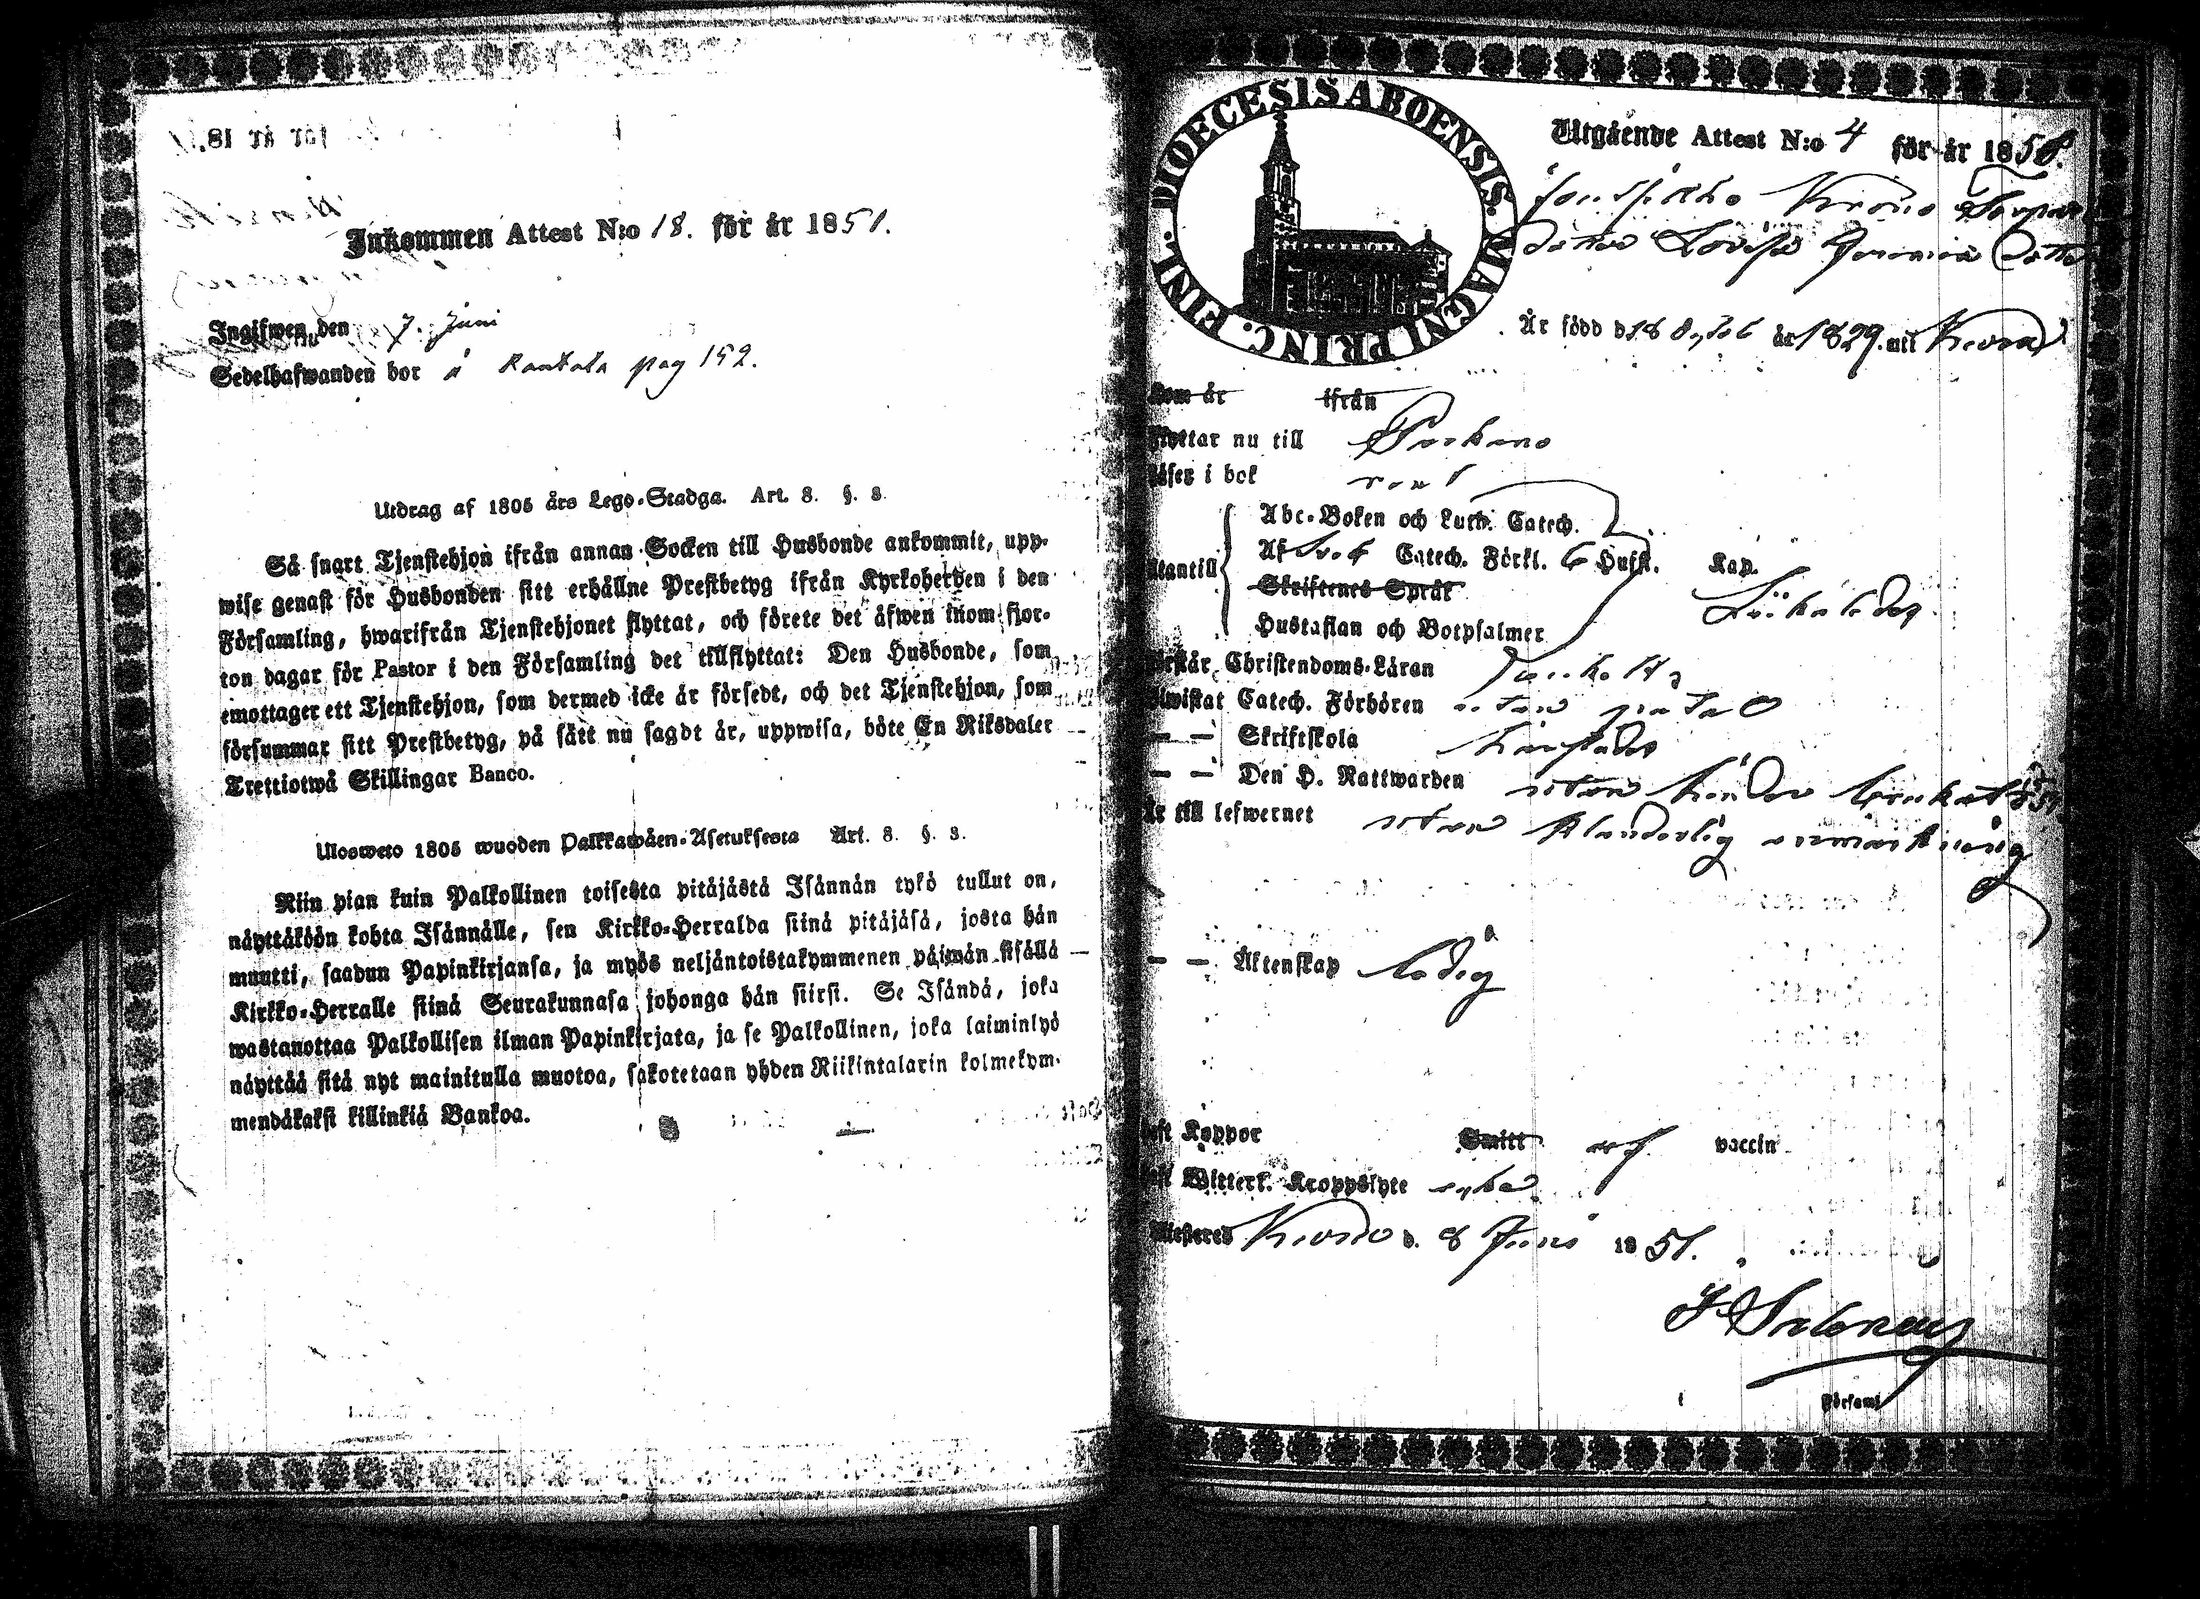 Inkommen Attest N:o 18. för år 1851.
Ingifwen den 7. Juni
Sedelhafwanden bor å Rantala pag 152.
Utdrag af 1805 års Lego-Stadga. Art. 8. §. 8.
Så snart Tjenstehjon ifrån annan Socken till Husbonde ankommit, upp-
wise genast för Husbonden sitt erhållne Prestbetyg ifrån Kyrkoherden i den
Församling, hwarifrån Tjenstehjonet flyttat, och förete det äfwen inom fjor-
ton dagar för Pastor i den Församling det tillflyttat: Den Husbonde, som
emottager ett Tjenstehjon, som dermed icke är försedt, och det Tjenstehjon, som
försummar sitt Prestbetyg, på sätt nu sagdt är, uppwisa, böte En Riksdaler
Trettiotwå Skillingar Banco.
Ulosweto 1805 wuoden Palkkawäen-Asetuksesta Art. 8. §. 8.
Niin pian kuin Palkollinen toisesta pitäjästä Isännän tykö tullut on,
näyttäköön kohta Isännälle, sen Kirkko-Herralda siinä pitäjäsä, josta hän
muutti, saadun Papinkirjansa, ja myös neljäntoistakymmenen päiwän sisällä
Kirkko-Herralle siinä Seurakunnasa johonga hän siirsi. Se Isändä, joka
wastanottaa Palkollisen ilman Papinkirjata, ja se Palkollinen, joka laiminlyö
näyttää sitä nyt mainitulla muotoa, sakotetaan yhden Riikintalarin kolmekym-
mendäkaksi killinkiä Bankoa.
DIOECESIS ABOENSIS. MAGNI PRINC. FINL.
Utgående Attest N:o 4 för år 185
Krono Torpare
dotter Lovisa dotter
Är född d. 18 år 1829. uti
Kom år ifrån
Flyttar nu till Parkano
Läser i bok rent
Utantill
Abc-Boken och Luth. Catech.
Af Sveb Catech. Förkl. 6 Hufst. Kap.
Skriftenes Språk
Hustaflan och Botpsalmer
Förstår Christendoms-Läran
Biwistat Catech. Förhören
— — Skriftskola
— — Den H. Nattwarden
Är till lefwernet utan klanderlig anmärkning
— — Äktenskap ledig
Haft Koppor Smitt vaccin
Haft Witterl. Kroppslyte
Attesteras d. 8 Juni 1851.
Församl